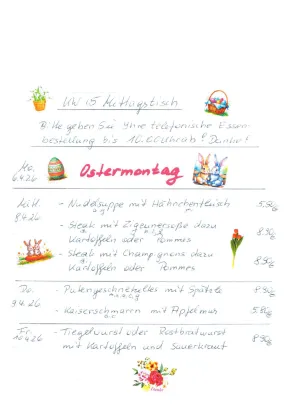 KW 15 Mittagstisch
Bitte geben Sie Ihre telefonische Essen-
bestellung bis 10.00 Uhr ab! Danke!
Mo. 6.4.26 Ostermontag
8.4.26 - Nudelsuppe mit Hähnchenfleisch 5.50
- Steak mit Zigeunersoße dazu
Kartoffeln oder Pommes 8.50
- Steak mit Champignons dazu
Kartoffeln oder Pommes 8.50
Do. 9.4.26 - Putengeschnetzeltes mit Spätzle 8.90
- Kaiserschmarrn mit Apfelmus 5.80
Fr. 10.4.26 - Tiegelwurst oder Rostbratwurst
mit Kartoffeln und Sauerkraut 8.90